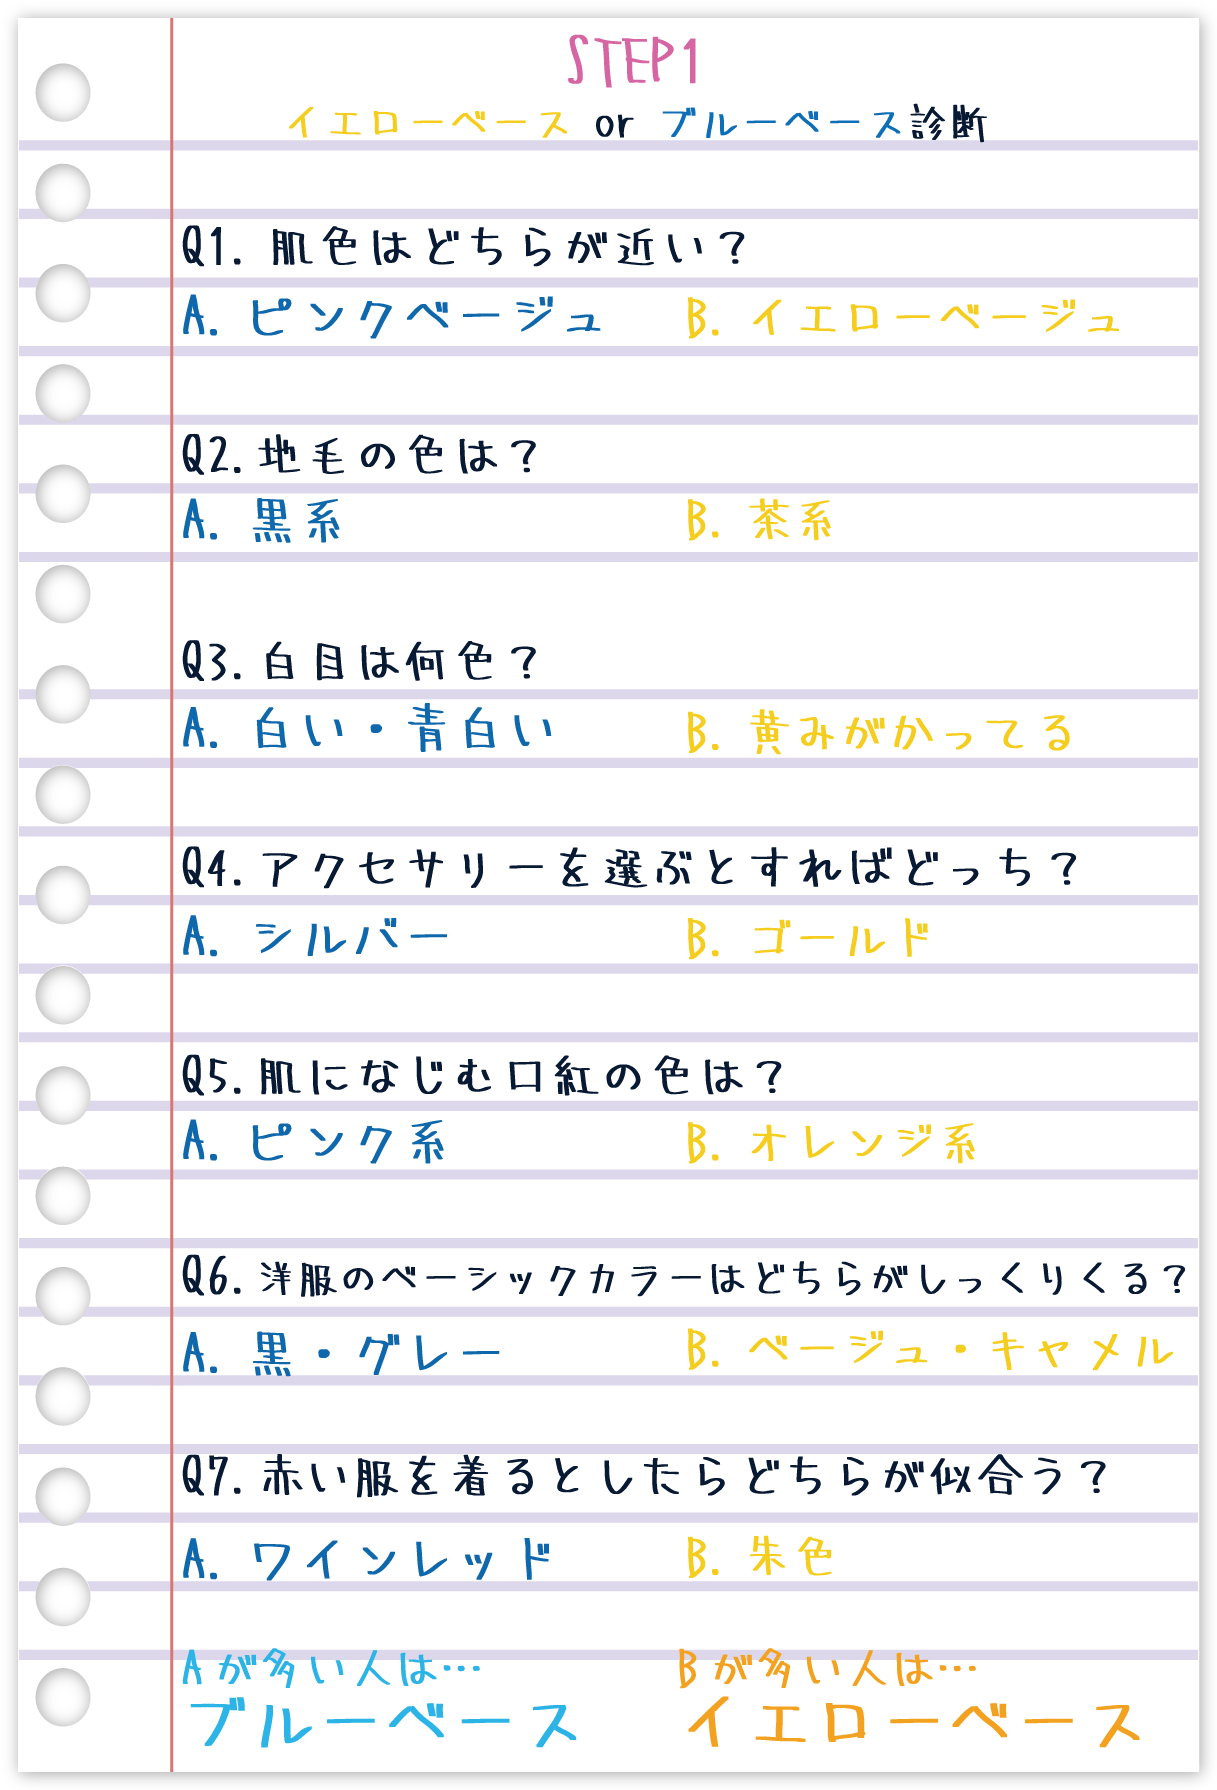 STEP1
イエローベース or ブルーベース診断
Q1. 肌色はどちらが近い？
A. ピンクベージュ B. イエローベージュ
Q2. 地毛の色は？
A. 黒系 B. 茶系
Q3. 白目は何色？
A. 白い・青白い B. 黄みがかってる
Q4. アクセサリーを選ぶとすればどっち？
A. シルバー B. ゴールド
Q5. 肌になじむ口紅の色は？
A. ピンク系 B. オレンジ系
Q6. 洋服のベーシックカラーはどちらがしっくりくる？
A. 黒・グレー B. ベージュ・キャメル
Q7. 赤い服を着るとしたらどちらが似合う？
A. ワインレッド B. 朱色
Aが多い人は… Bが多い人は…
ブルーベース イエローベース